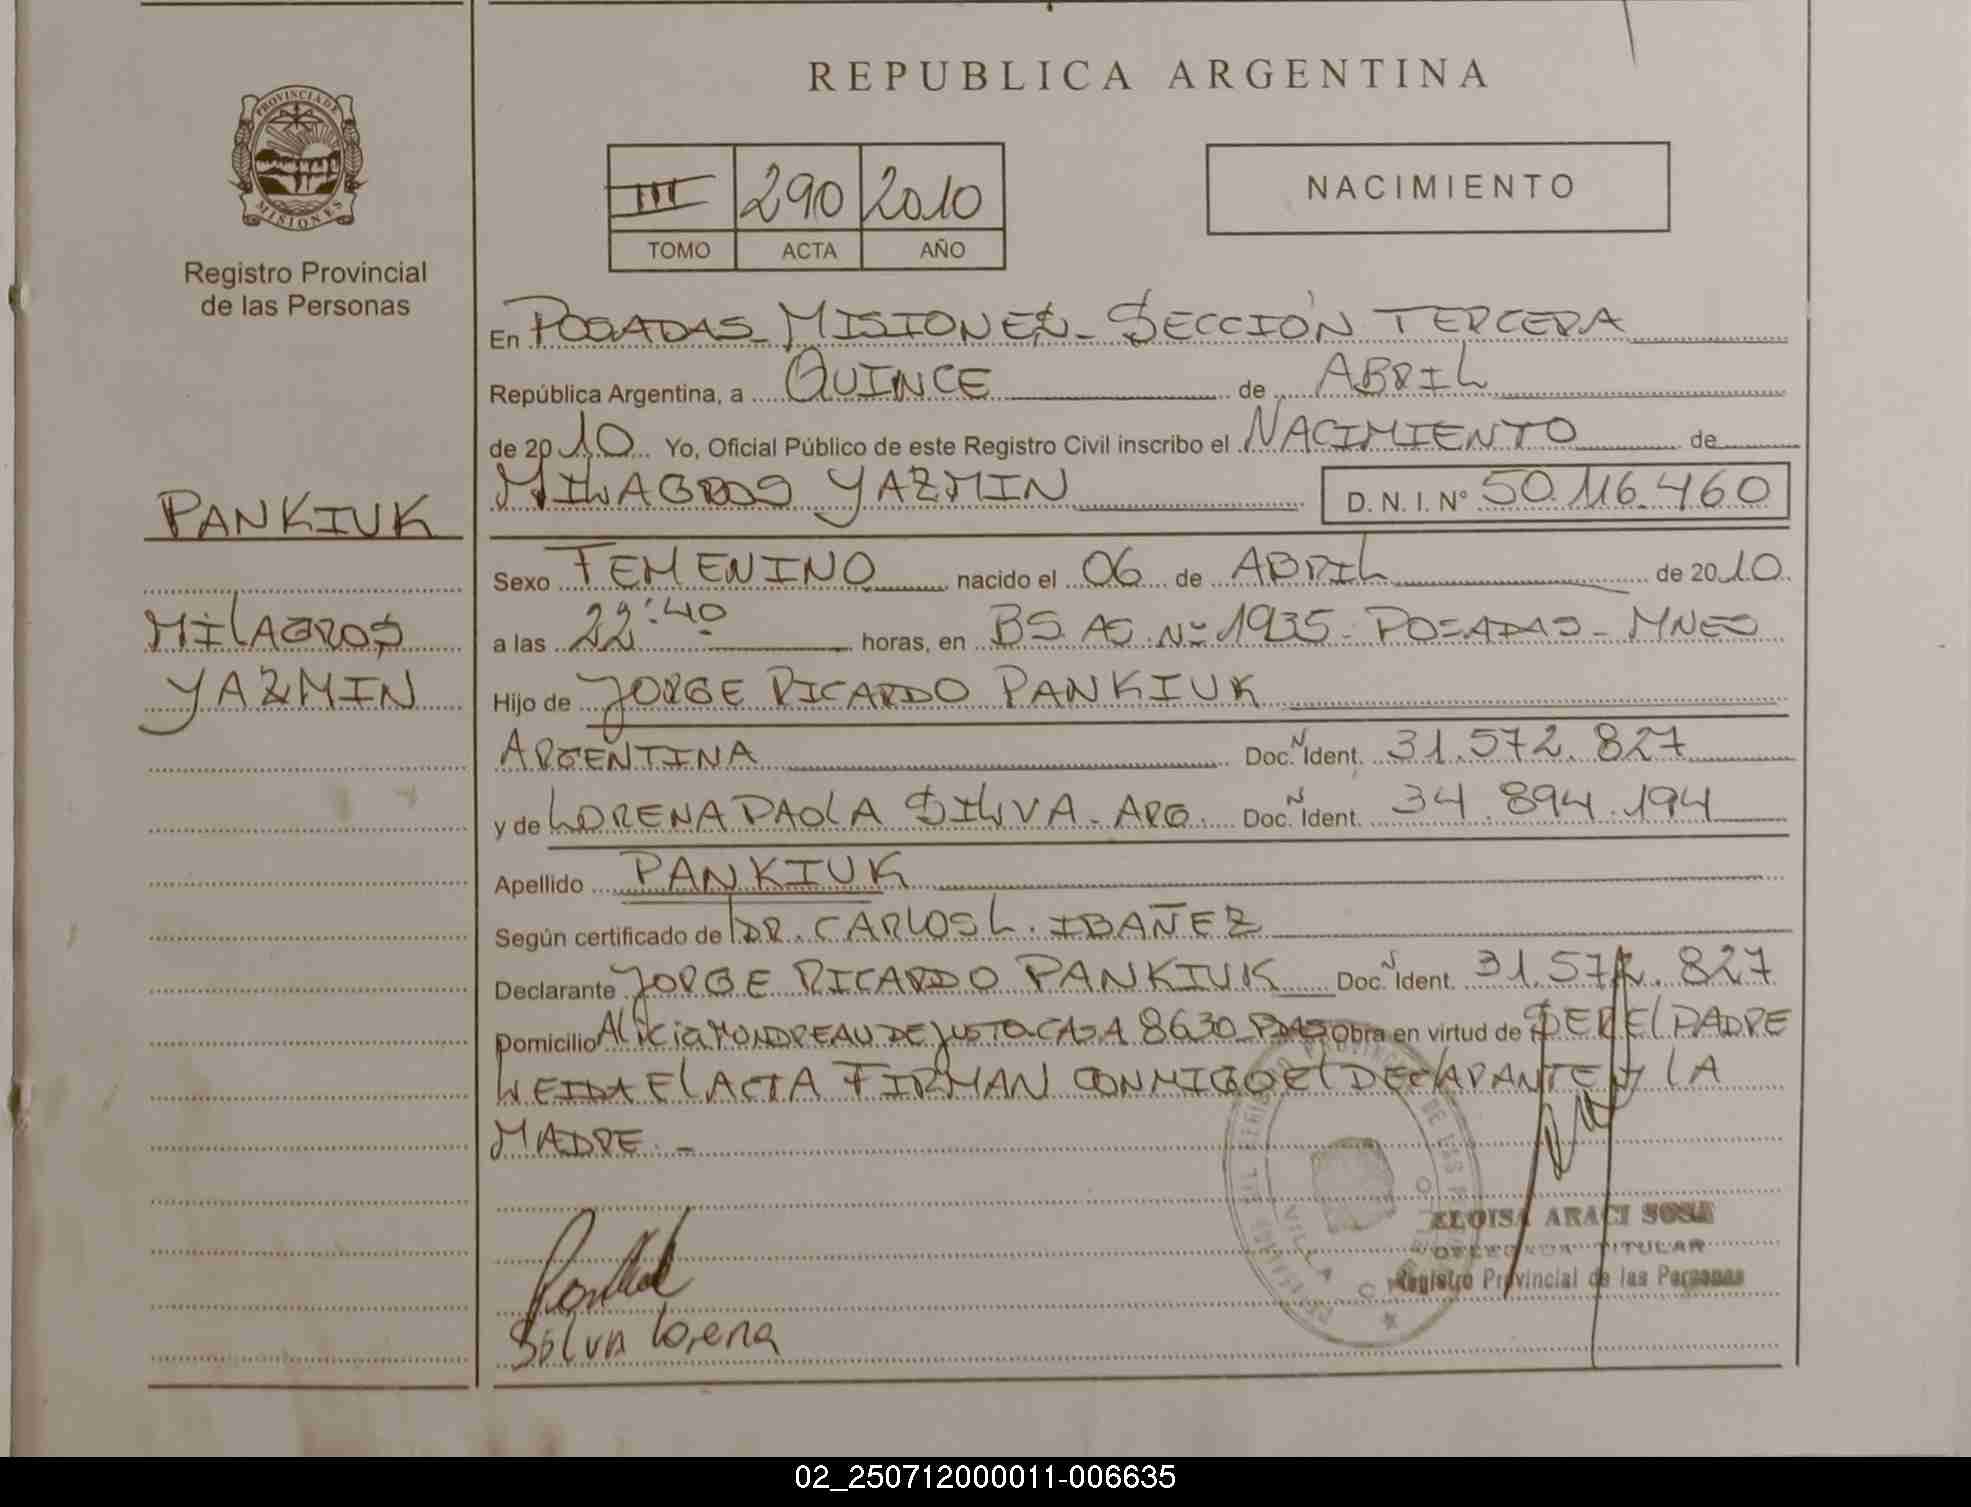 REPUBLICA ARGENTINA
PROVINCIA DE
MISIONES
Registro Provincial
de las Personas
III 290 2010
TOMO ACTA AÑO
NACIMIENTO
PANKIUK
MILAGROS
YAZMIN
En POSADAS - MISIONES - SECCIÓN TERCERA
República Argentina, a QUINCE de ABRIL
de 2010 Yo, Oficial Público de este Registro Civil inscribo el NACIMIENTO de
MILAGROS YAZMIN D.N.I. Nº 50.116.460
Sexo FEMENINO nacido el 06 de ABRIL de 2010
a las 22:40 horas, en BS. AS. Nº 1935 - POSADAS - MNES
Hijo de JORGE RICARDO PANKIUK
ARGENTINA Doc. N Ident. 31.572.827
y de LORENA PAOLA SILVA - ARG. Doc. N Ident. 34.894.194
Apellido PANKIUK
Según certificado de DR. CARLOS L. IBAÑEZ
Declarante JORGE RICARDO PANKIUK Doc. N Ident. 31.572.827
Domicilio ALICIA MONDREAU DE JUSTO CASA 8630 - PDAS Obra en virtud de SER EL PADRE
LEIDA EL ACTA FIRMAN CONMIGO el DECLARANTE y LA
MADRE. -
ELOISA ARACI SOSA
DELEGADA TITULAR
Registro Provincial de las Personas
Silva Lorena
02_250712000011-006635